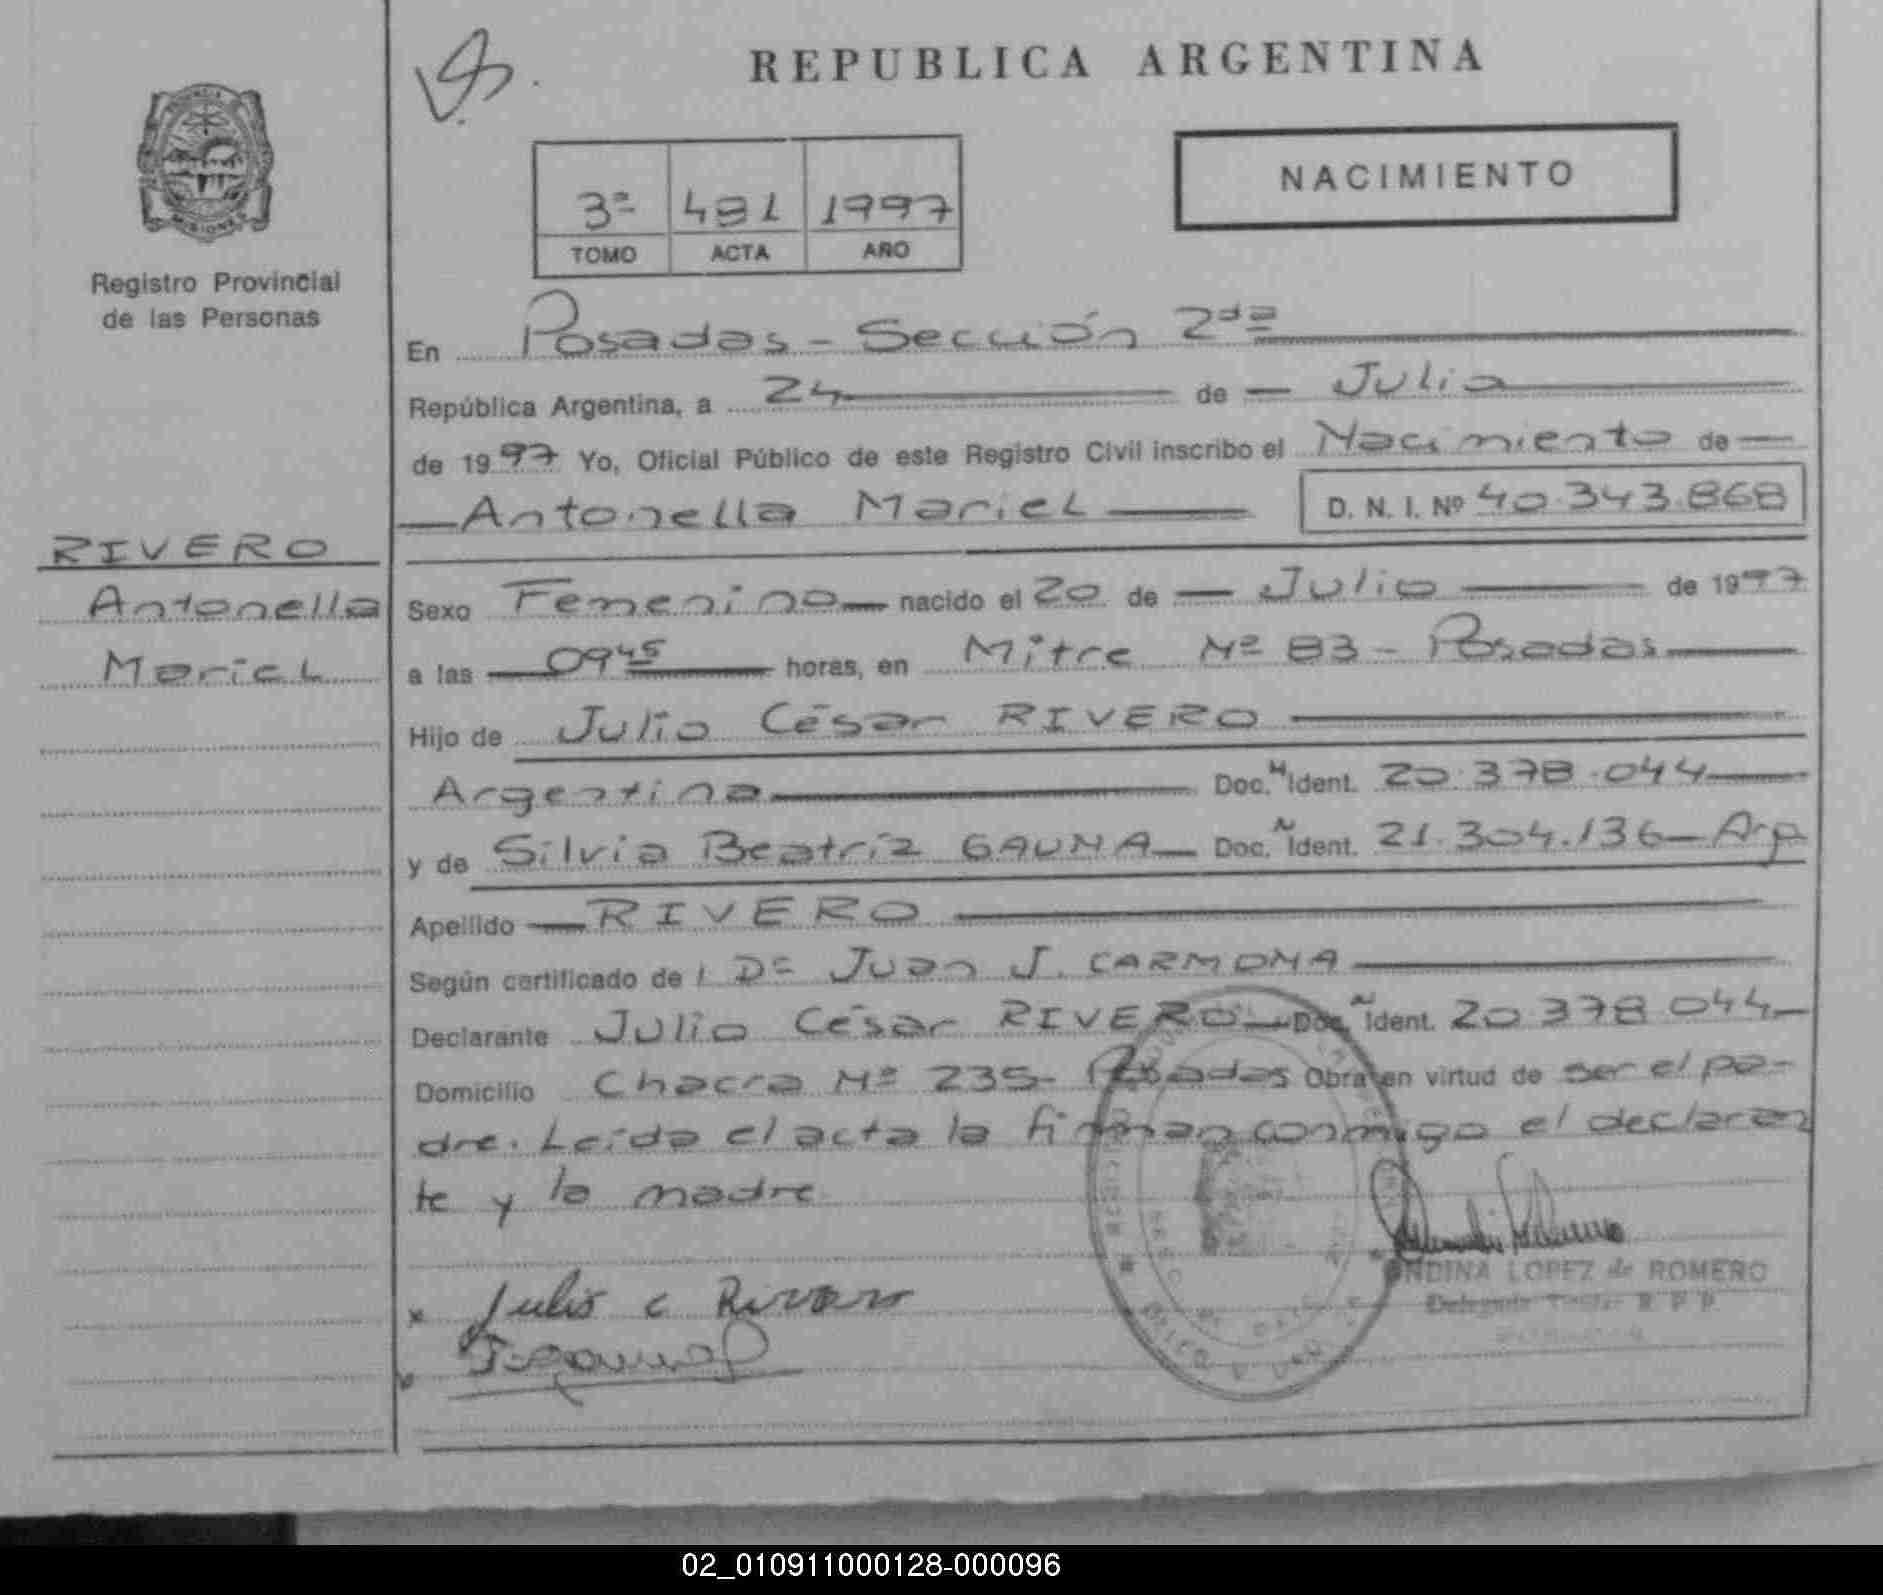 REPUBLICA ARGENTINA
NACIMIENTO
3ª 491 1997
TOMO ACTA AÑO
MISIONES
Registro Provincial
de las Personas
RIVERO
Antonella
Mariel
En Posadas - Sección 2da
República Argentina, a 24 de Julio
de 1997 Yo, Oficial Público de este Registro Civil inscribo el Nacimiento de
Antonella Mariel D. N. I. Nº 40.343.868
Sexo Femenino nacido el 20 de Julio de 1997
a las 09 45 horas, en Mitre Nº 83 - Posadas
Hijo de Julio César RIVERO
Argentina Doc. N Ident. 20.378.044
y de Silvia Beatríz GAUNA Doc. N Ident. 21.304.136 - Arg
Apellido RIVERO
Según certificado de Dr Juan J. CARMONA
Declarante Julio César RIVERO Doc. N Ident. 20 378 044
Domicilio Chacra Nº 235 - Posadas Obra en virtud de ser el pa-
dre. Leída el acta la firman conmigo el declaran
te y la madre
Julio c Rivero
ONDINA LOPEZ de ROMERO
02_010911000128-000096